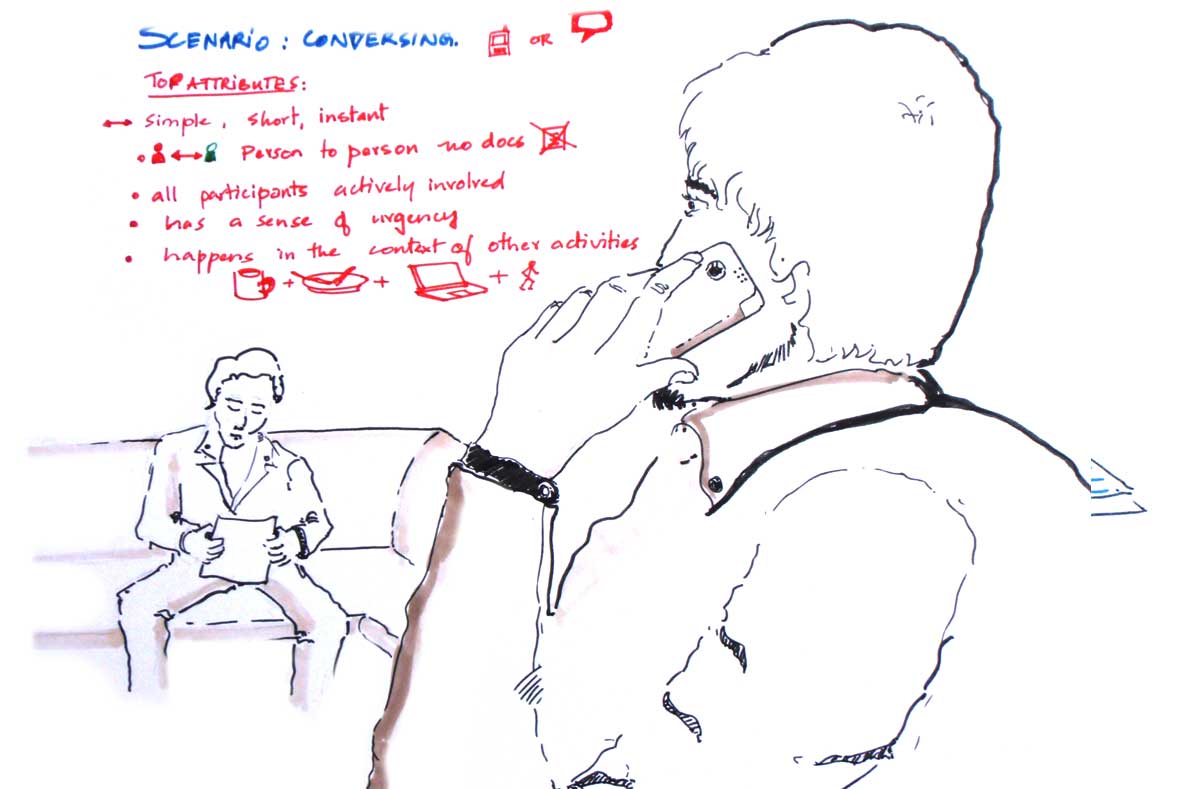 SCENARIO : CONVERSING. OR
TOP ATTRIBUTES:
simple, short, instant
• Person to person no docs
• all participants actively involved
• has a sense of urgency
• happens in the context of other activities
+ + +